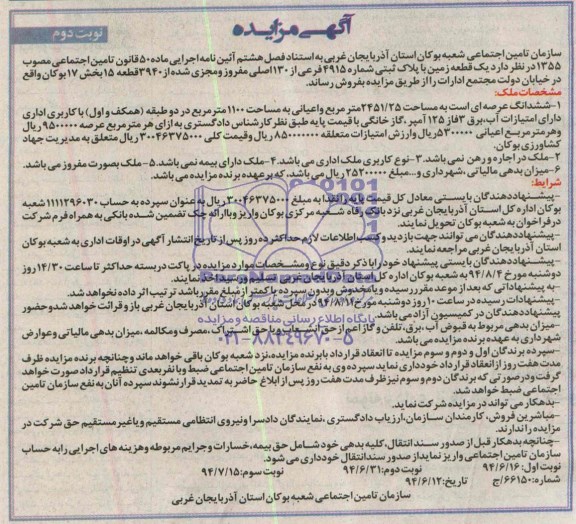 آگهی مزایده
نوبت دوم
سازمان تامین اجتماعی شعبه بوکان استان آذربایجان غربی به استناد فصل هشتم آئین نامه اجرایی ماده ۵۰ قانون تامین اجتماعی مصوب
۱۳۵۵ در نظر دارد یک قطعه زمین با پلاک ثبتی شماره ۴۹۱۵ فرعی از ۱۳۰ اصلی مفروز و مجزی شده از ۳۹۴۰ قطعه ۱۵ بخش ۱۷ بوکان واقع
در خیابان دولت مجتمع ادارات را از طریق مزایده بفروش رساند.
مشخصات ملک:
۱- ششدانگ عرصه ای است به مساحت ۲۴۵۱/۲۵ متر مربع و اعیانی به مساحت ۱۱۰۰ متر مربع در دو طبقه (همکف و اول) با کاربری اداری
دارای امتیازات آب، برق ۳ فاز ۱۲۵ آمپر، گاز خانگی با قیمت پایه طبق نظر کارشناس دادگستری به ازای هر متر مربع عرصه ۹۵۰۰۰۰۰ ریال
و هر متر مربع اعیانی ۵۳۰۰۰۰۰ ریال و ارزش امتیازات متعلقه ۸۵۰۰۰۰۰۰ ریال و قیمت کلی ۳۰۰۴۶۳۷۵۰۰۰ ریال متعلق به مدیریت جهاد
کشاورزی بوکان.
۲- ملک در اجاره و رهن نمی باشد. ۳- نوع کاربری ملک اداری می باشد. ۴- ملک دارای بیمه نمی باشد. ۵- ملک بصورت مفروز می باشد.
۶- میزان بدهی مالیاتی، شهرداری و... مبلغ ۲۵۲۰۰۰۰۰ ریال می باشد، که بر عهده برنده مزایده می باشد.
شرایط:
- پیشنهاد دهندگان بایستی معادل کل قیمت پایه را نقدا به مبلغ ۳۰۰۴۶۳۷۵۰۰۰ ریال به عنوان سپرده به حساب ۱۱۱۱۲۹۶۰۳۰ شعبه
بوکان اداره کل استان آذربایجان غربی نزد بانک رفاه شعبه مرکزی بوکان واریز و یا ارائه چک تضمین شده بانکی به همراه فرم شرکت
در فراخوان به شعبه بوکان تحویل نمایند.
- پیشنهاد دهندگان می توانند جهت بازدید و کسب اطلاعات لازم حداکثر ده روز پس از تاریخ انتشار آگهی در اوقات اداری به شعبه بوکان
استان آذربایجان غربی مراجعه نمایند.
- پیشنهاد دهندگان بایستی پیشنهاد خود را با ذکر دقیق نوع و مشخصات موارد مزایده در پاکت دربسته حداکثر تا ساعت ۱۴/۳۰ روز
دوشنبه مورخ ۹۴/۸/۴ به شعبه بوکان اداره کل استان آذربایجان غربی تسلیم و رسید اخذ نمایند.
- به پیشنهاداتی که بعد از موعد مقرر رسیده و یا مخدوش و بدون سپرده یا کمتر از مبلغ مقرر باشد ترتیب اثر داده نخواهد شد.
- پیشنهادات رسیده در ساعت ۱۰ روز دوشنبه مورخ ۹۴/۸/۱۲ در محل شعبه بوکان استان آذربایجان غربی باز و قرائت خواهد شد و حضور
پیشنهاد دهندگان در کمیسیون آزاد می باشد.
پایگاه اطلاع رسانی مناقصه و مزایده
۰۲۱-۸۸۳۴۹۶۷۰-۵
- میزان بدهی مربوط به قبوض آب، برق، تلفن و گاز اعم از حق انشعاب و یا حق اشتراک، مصرف و مکالمه، میزان بدهی مالیاتی و عوارض
شهرداری به عهده برنده مزایده می باشد.
- سپرده برندگان اول و دوم و سوم مزایده تا انعقاد قرارداد با برنده مزایده، نزد شعبه بوکان باقی خواهد ماند و چنانچه برنده مزایده ظرف
مدت هفت روز از انعقاد قرارداد خودداری نماید سپرده وی به نفع سازمان تامین اجتماعی ضبط و با نفر بعدی تنظیم قرارداد صورت خواهد
گرفت و در صورتی که برندگان دوم و سوم نیز ظرف مدت هفت روز پس از ابلاغ حاضر به تمدید قرار نشوند سپرده آنان به نفع سازمان تامین
اجتماعی ضبط خواهد شد.
- بدهکار می تواند در مزایده شرکت نماید.
- مباشرین فروش، کارمندان سازمان، ارزیاب دادگستری، نمایندگان دادسرا و نیروی انتظامی مستقیم و یا غیر مستقیم حق شرکت در
مزایده را ندارند.
- چنانچه بدهکار قبل از صدور سند انتقال، کلیه بدهی خود شامل حق بیمه، خسارات و جرایم مربوطه و هزینه های اجرایی را به حساب
سازمان تامین اجتماعی واریز نماید از صدور سند انتقال خودداری می شود.
نوبت اول: ۹۴/۶/۱۶ نوبت دوم: ۹۴/۶/۳۱ نوبت سوم: ۹۴/۷/۱۵
شماره: ۶۶۱۵۰/ج تاریخ: ۹۴/۶/۱۲
سازمان تامین اجتماعی شعبه بوکان استان آذربایجان غربی